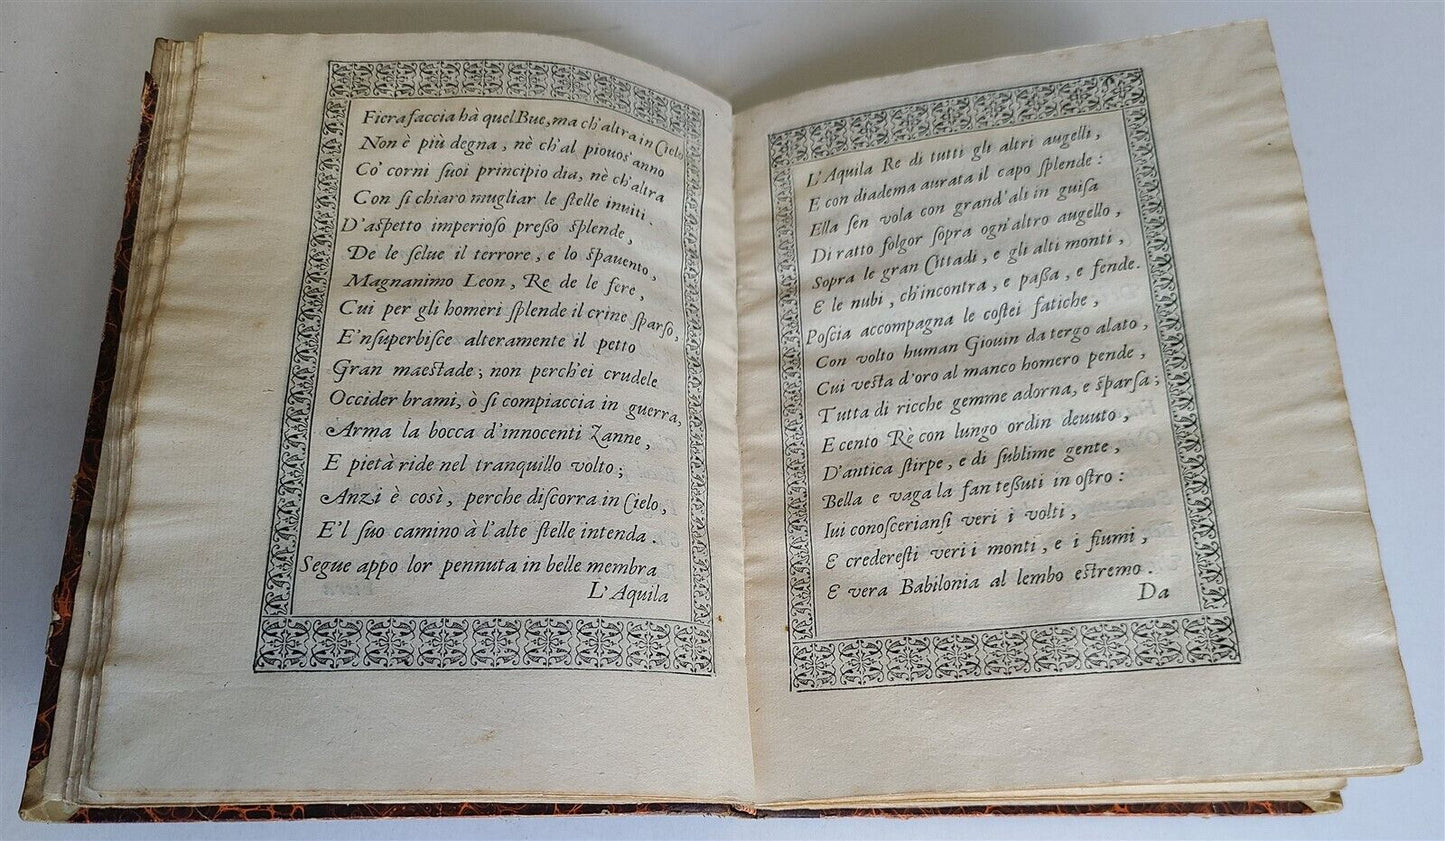 Fiera faccia hà quel Bue, ma ch'altra in Cielo
Non è più degna, nè ch'al piouos' anno
Co' corni ſuoi principio dia, nè ch'altra
Con ſi chiaro mugliar le ſtelle inuiti.
D'aſpetto imperioſo preſſo ſplende,
De le ſelue il terrore, e lo ſpauento,
Magnanimo Leon, Re de le fere,
Cui per gli homeri ſplende il crine ſparſo,
E'nſuperbiſce alteramente il petto
Gran maeſtade; non perch'ei crudele
Occider brami, ò ſi compiaccia in guerra,
Arma la bocca d'innocenti Zanne,
E pietà ride nel tranquillo volto;
Anzi è così, perche diſcorra in Cielo,
E'l ſuo camino à l'alte ſtelle intenda.
Segue appo lor pennuta in belle membra
L'Aquila
L'Aquila Re di tutti gli altri augelli,
E con diadema aurata il capo ſplende:
Ella ſen vola con grand'ali in guiſa
Di ratto folgor ſopra ogn'altro augello,
Sopra le gran Cittadi, e gli alti monti,
E le nubi, ch'incontra, e paßa, e fende.
Poſcia accompagna le coſtei fatiche,
Con volto human Giouin da tergo alato,
Cui veſta d'oro al manco homero pende,
Tutta di ricche gemme adorna, e ſparſa;
E cento Rè con lungo ordin deuuto,
D'antica ſtirpe, e di ſublime gente,
Bella e vaga la fan teßuti in oſtro:
Iui conoſcerianſi veri i volti,
E credereſti veri i monti, e i fiumi,
E vera Babilonia al lembo eſtremo.
Da